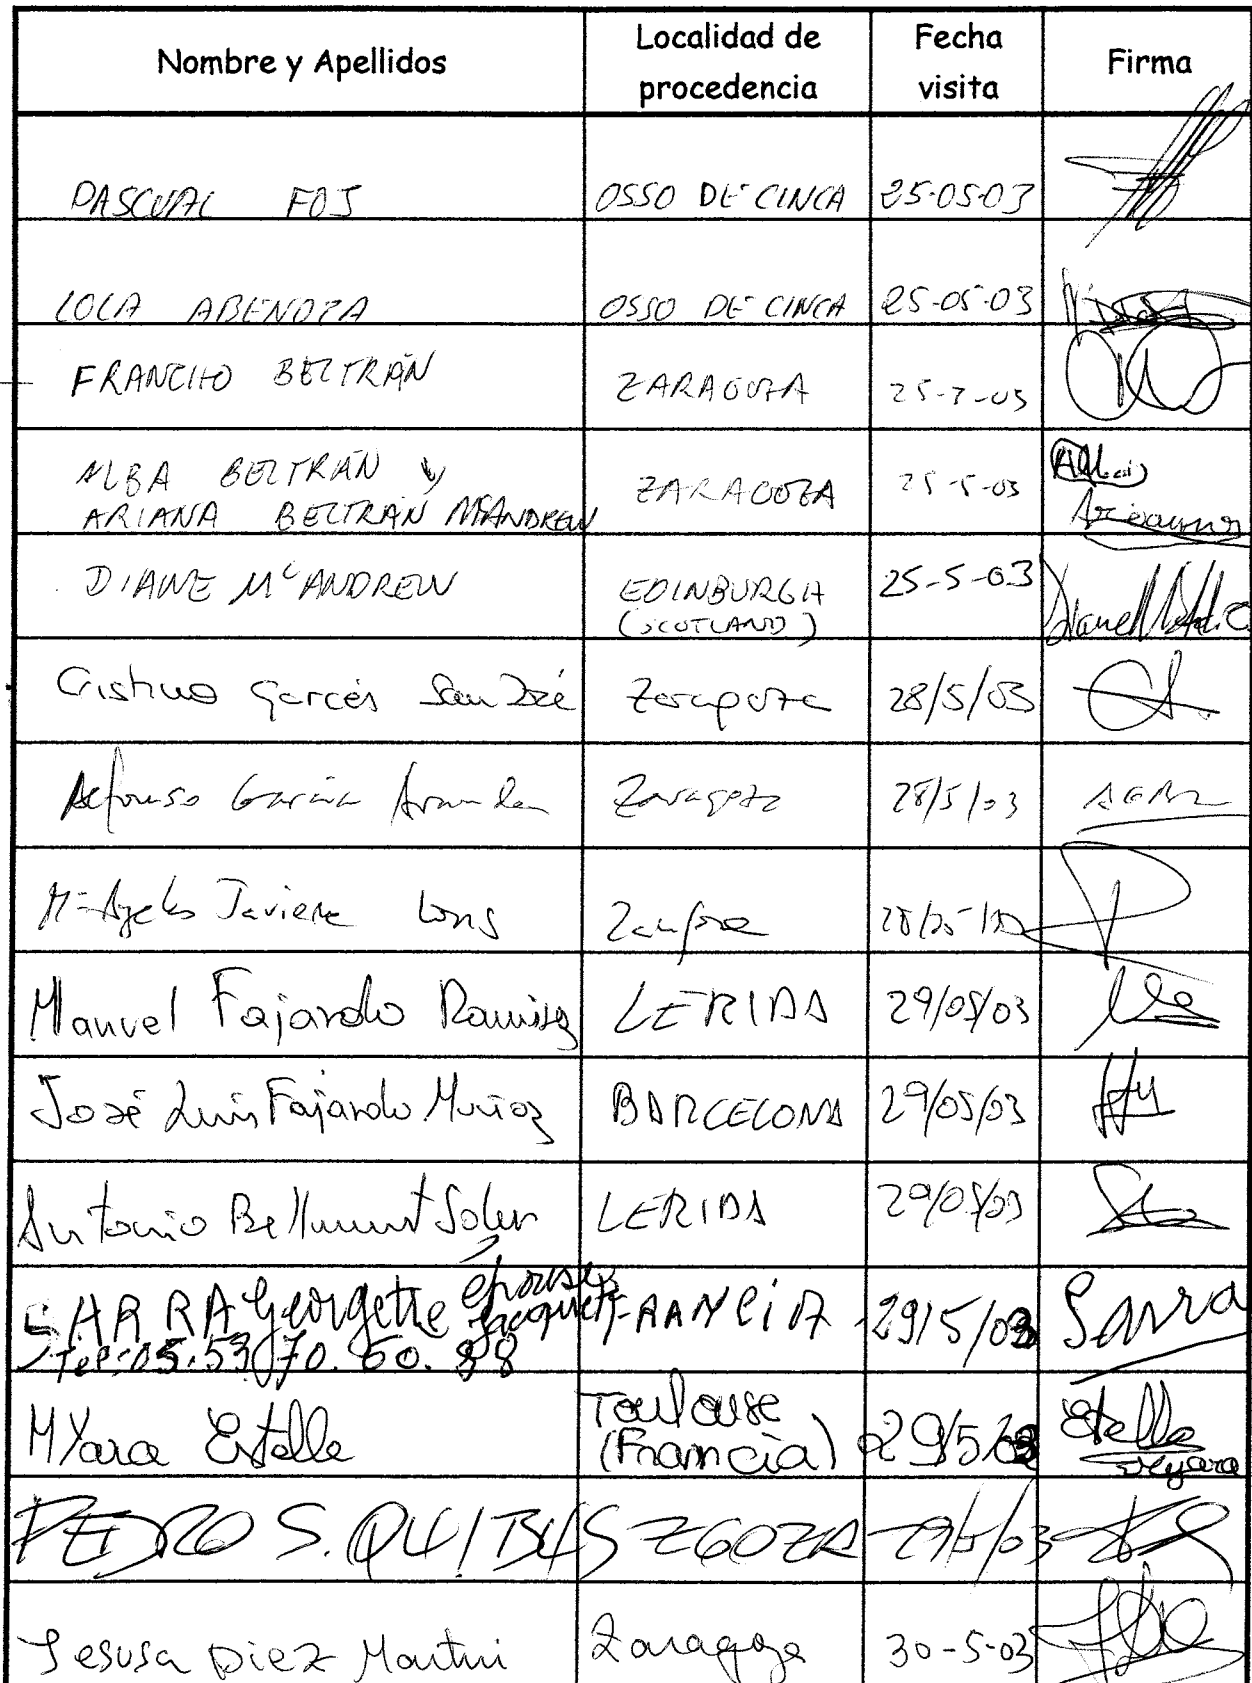 Nombre y Apellidos Localidad de procedencia Fecha visita Firma
PASCUAL FOJ OSSO DE CINCA 25-05-03
LOLA ABENOZA OSSO DE CINCA 25-05-03
FRANCHO BELTRÁN ZARAGOZA 25-5-03
ALBA BELTRÁN y ZARAGOZA 25-5-03 Alba
ARIANA BELTRÁN McANDREW
DIANE McANDREW EDINBURGH 25-5-03
(SCOTLAND)
Cristina Garcés San José Zaragoza 28/5/03
Alfonso García Aranda Zaragoza 28/5/03
Mª Angeles Javierre Zaragoza
Manuel Fajardo Ramirez LERIDA 29/05/03
José Luis Fajardo Muñoz BARCELONA 29/05/03
Antonio Bellmunt Soler LERIDA 29/05/03
SARRA Georgette épouse Jacquet FRANCIA 29/5/03 Sarra
Tel: 05.53.70.60.88
MYara Estelle Toulouse (Francia) 29/5/03 Estelle
PEDRO S. QUIBUS ZGOZA 29/5/03
Jesusa Diez Martin Zaragoza 30-5-03